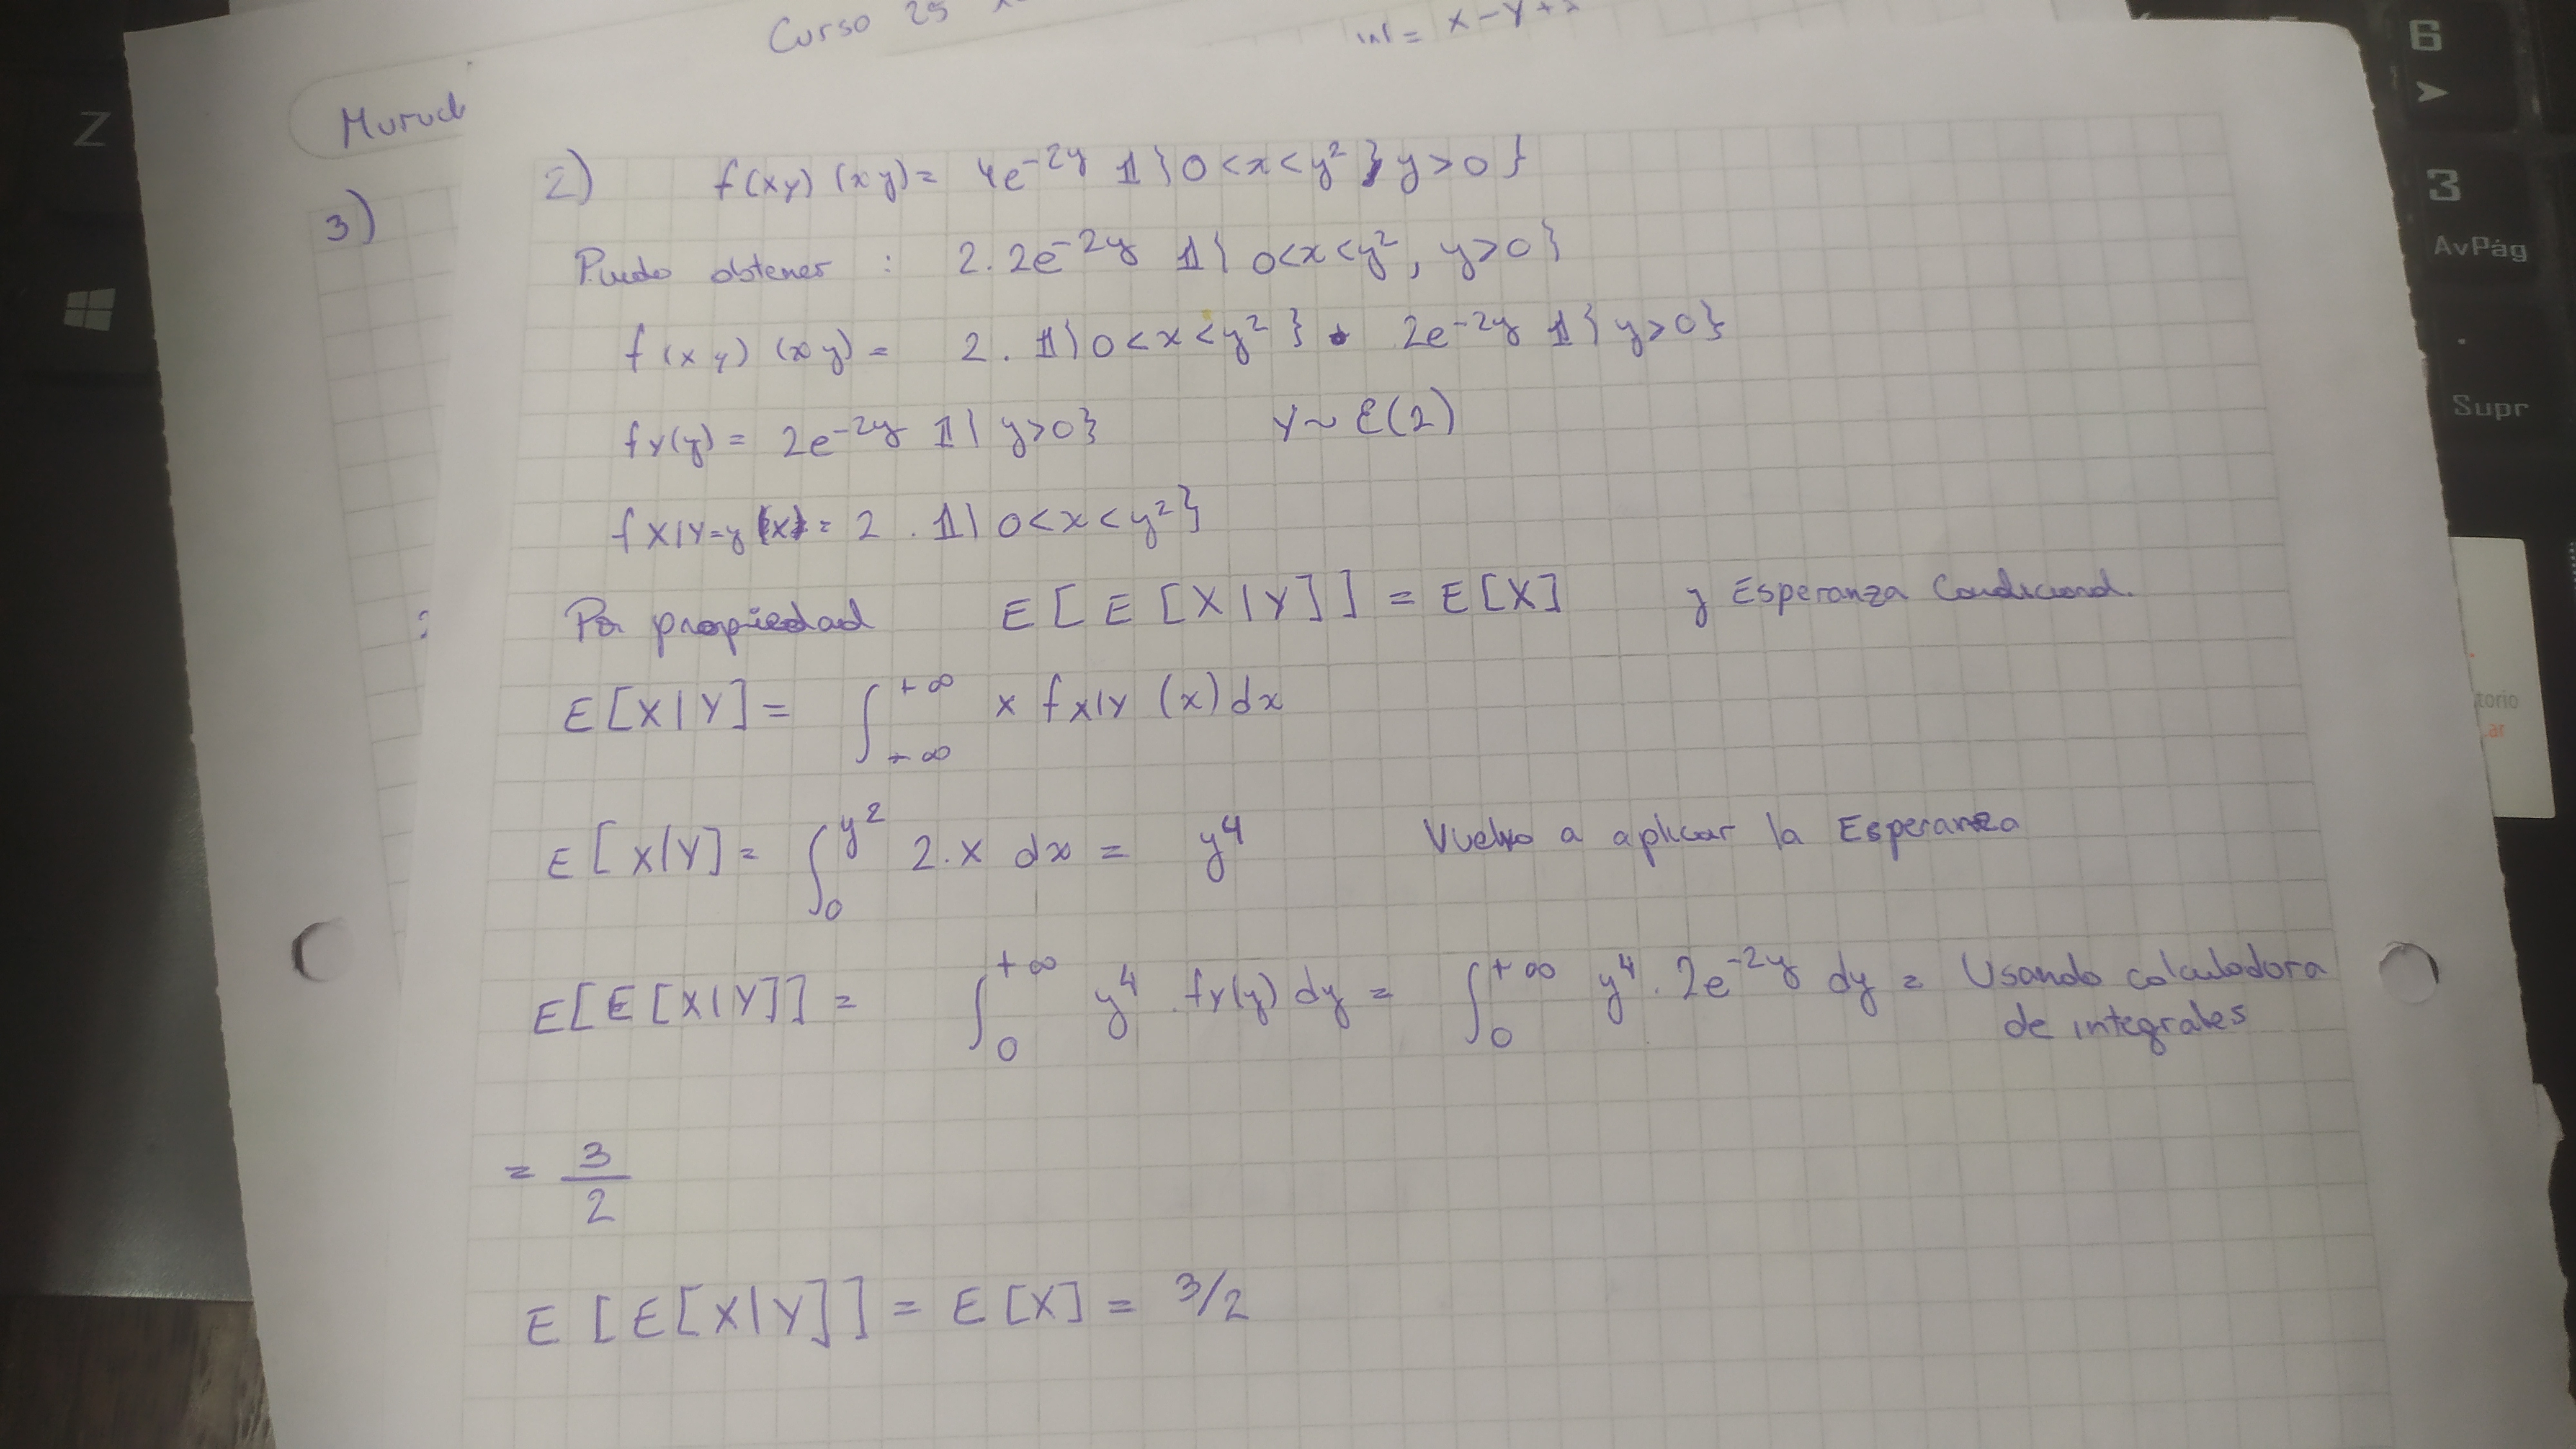 Curso 25
int = x - y +
Murud
3)
2) f(xy) (xy) = 4e^{-2y} 𝟙{0<x<y², y>0}
Puedo obtener : 2.2e^{-2y} 𝟙{0<x<y², y>0}
f(xy) (xy) = 2. 𝟙{0<x<y²} • 2e^{-2y} 𝟙{y>0}
fY(y) = 2e^{-2y} 𝟙{y>0} Y~ℰ(2)
fX|Y=y (x) = 2 . 𝟙{0<x<y²}
Por propiedad E[E[X|Y]] = E[X] y Esperanza Condicional.
E[X|Y] = ∫_{+∞}^{+∞} x fX|Y (x) dx
E[X|Y] = ∫_0^{y²} 2.x dx = y⁴ Vuelvo a aplicar la Esperanza
E[E[X|Y]] = ∫_0^{+∞} y⁴ . fY(y) dy = ∫_0^{+∞} y⁴ . 2e^{-2y} dy = Usando calculadora
de integrales
= 3/2
E[E[X|Y]] = E[X] = 3/2
Z
6
3
AvPág
.
Supr
torio
.ar